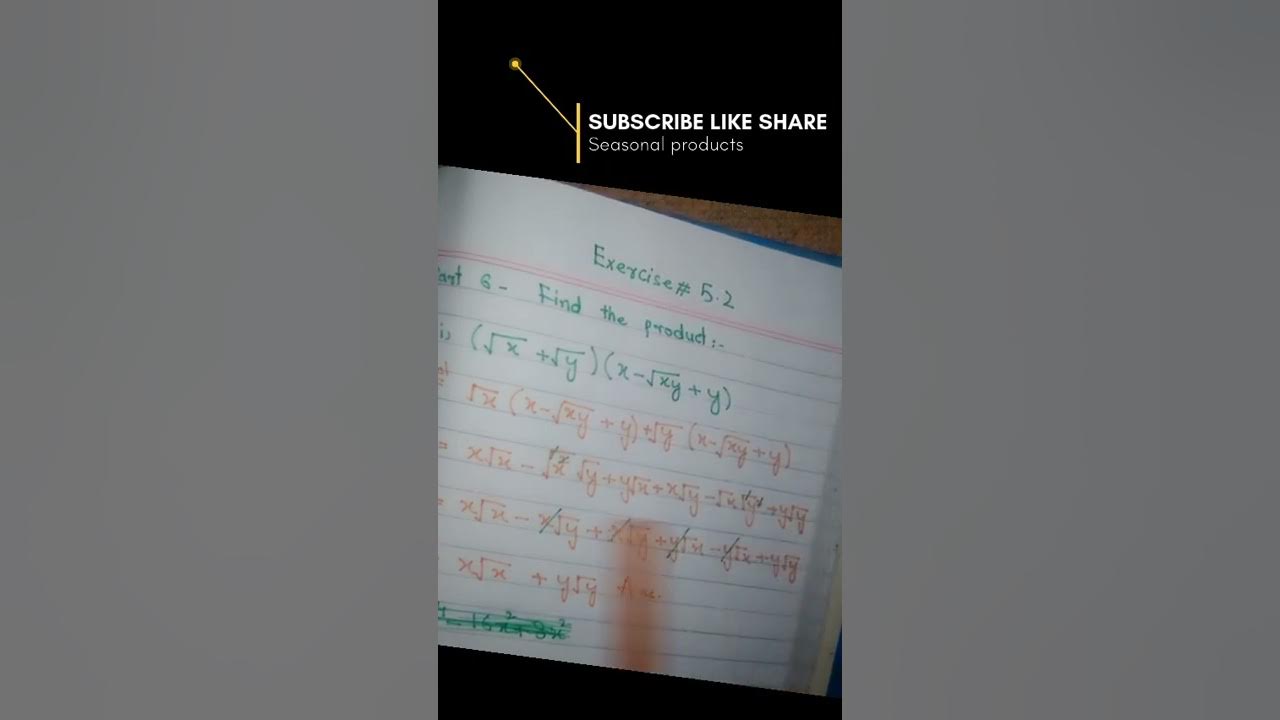 SUBSCRIBE LIKE SHARE
Seasonal products
Exercise# 5.2
6- Find the product:-
i, (√x + √y)(x - √xy + y)
√x (x - √xy + y) + √y (x - √xy + y)
= x√x - √x² √y + y√x + x√y - √x √y² + y√y
= x√x - x√y + x√y + y√x - y√x + y√y
x√x + y√y
- 16x² + 8x²